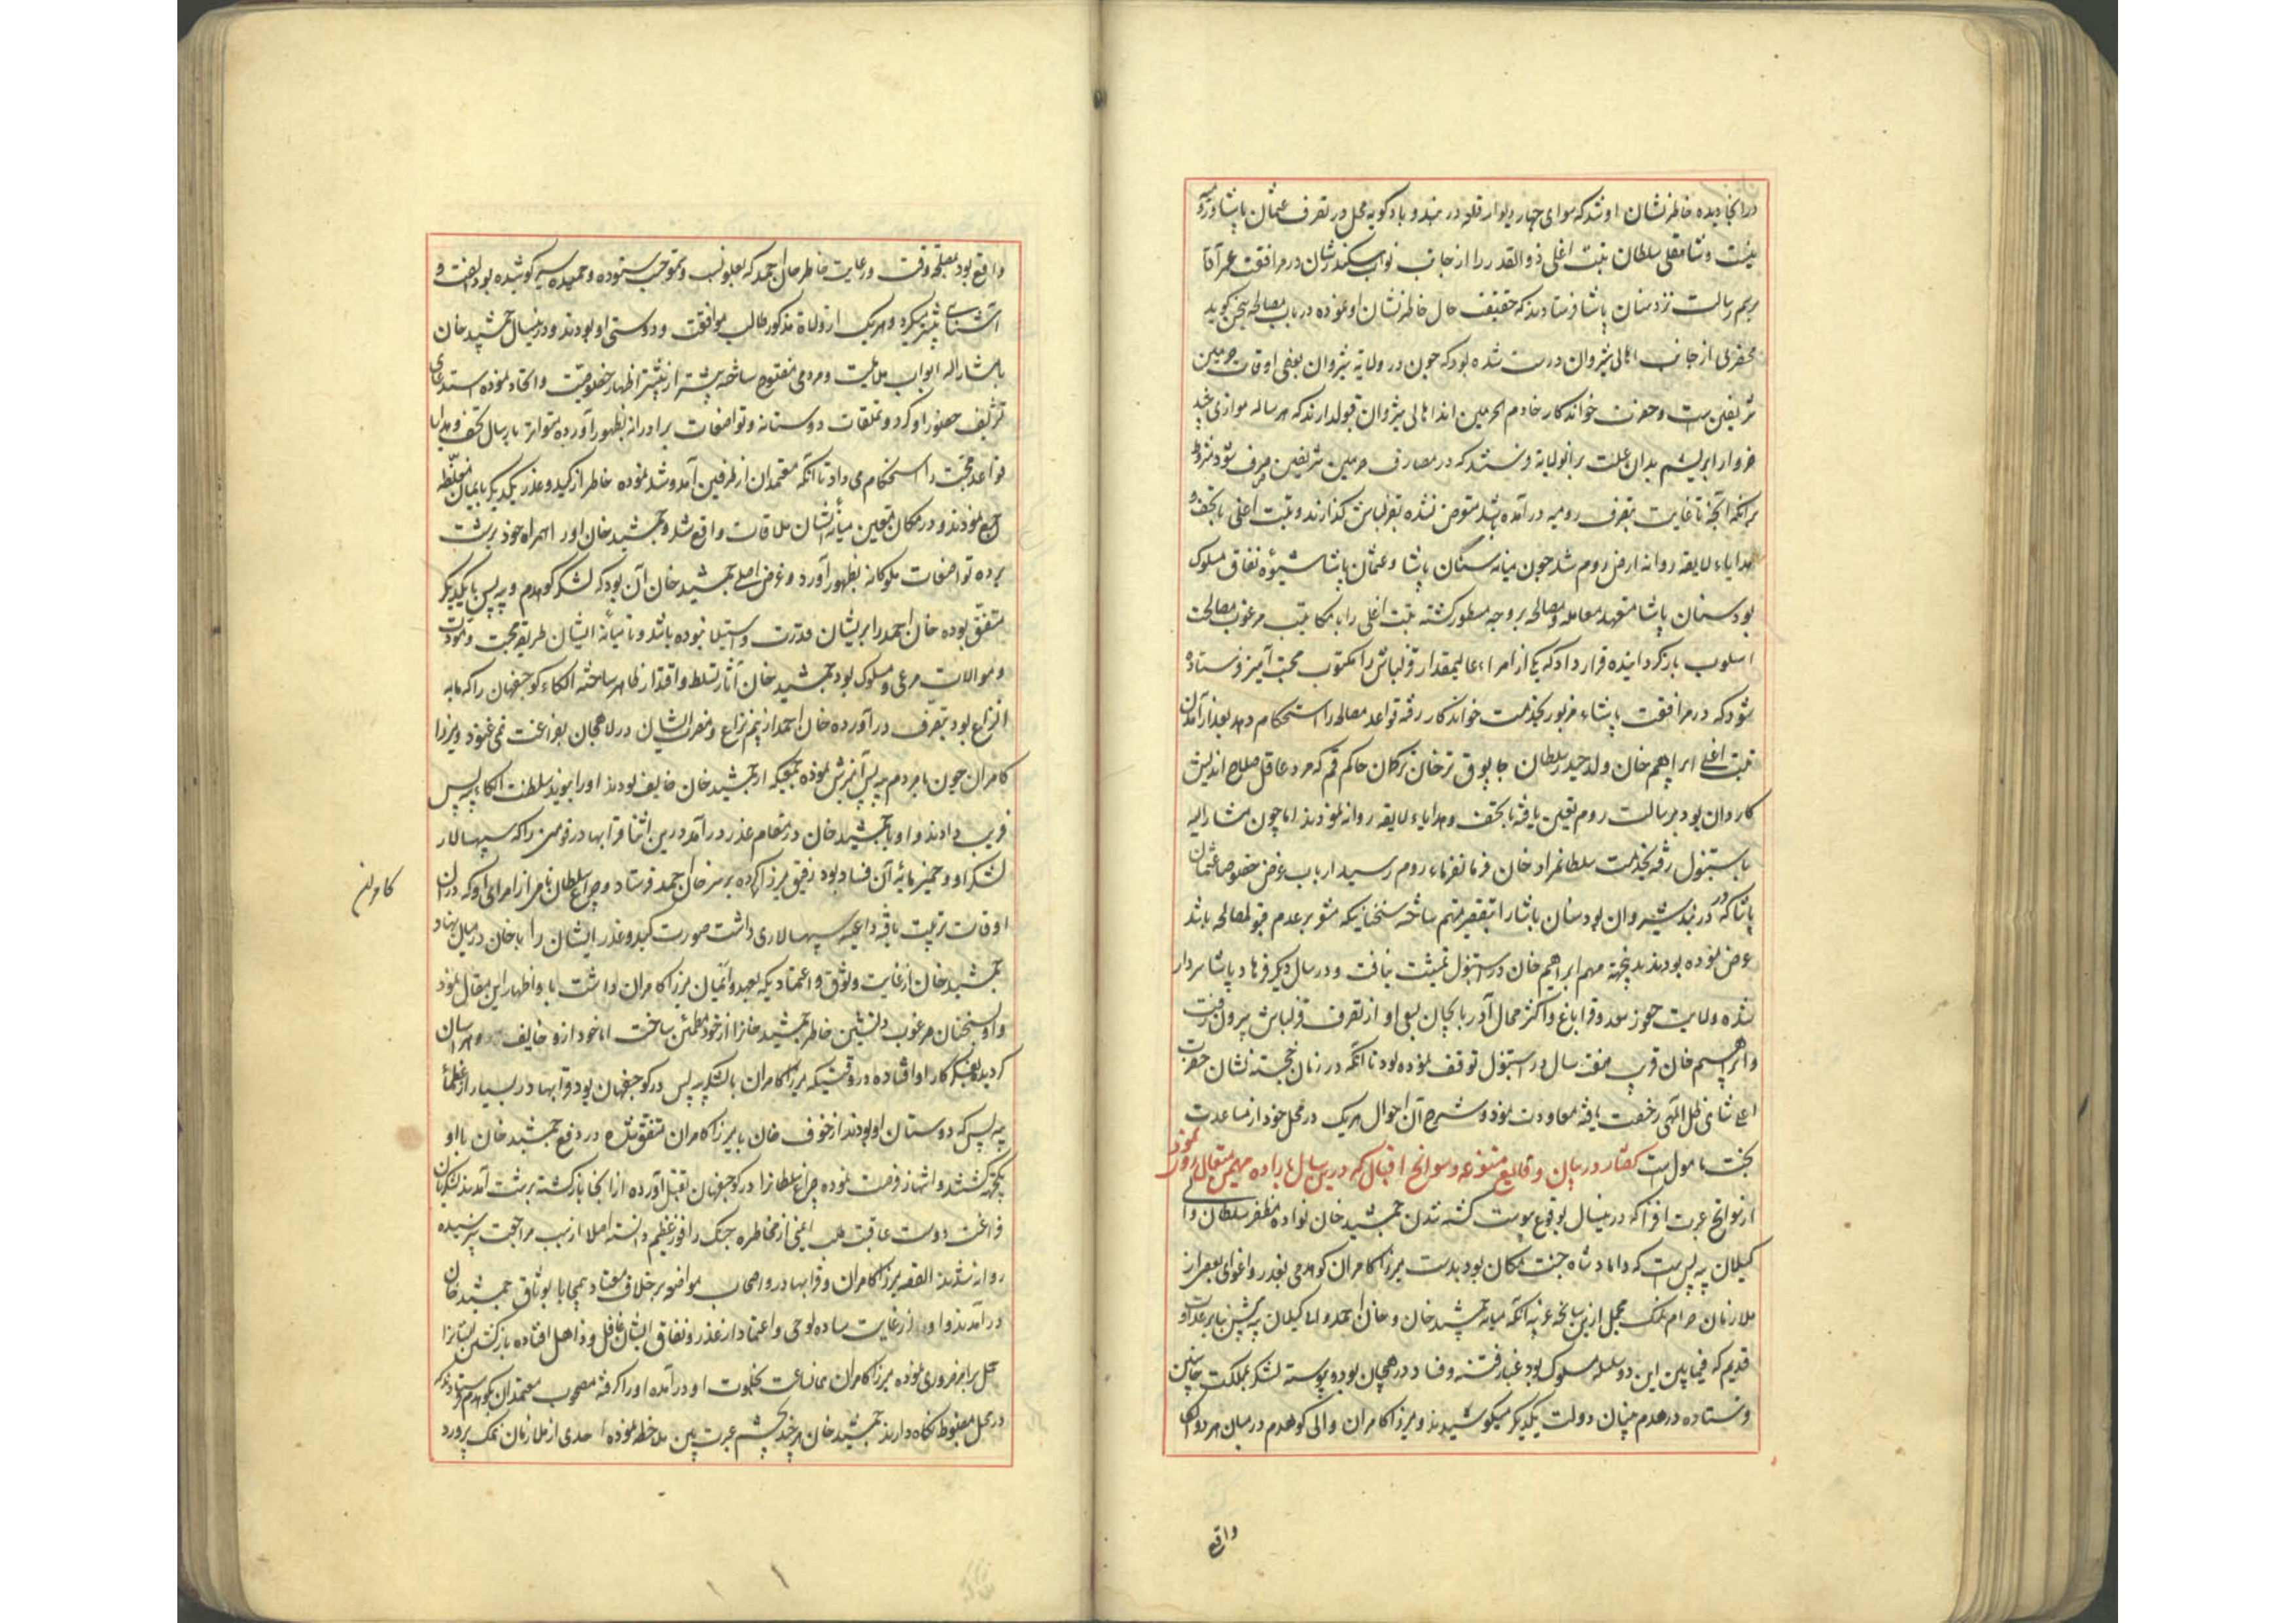 در آنجا دیده خاطرنشان او شد که سوای چهار دیوار قلعه دربند و بادکوبه محل در تصرف عثمان پاشا و رومیه
نیست و شاهقلی سلطان تبت اغلی ذوالقدر را از جانب نواب سکندرشان در مرافقت عمر آقا
برسم رسالت نزد سنان پاشا فرستادند که حقیقت حال خاطرنشان او نموده در باب مصالحه سخن گوید
محضری از جانب اهالی شیروان درست شده بود که چون در ولایة شیروان بعضی اوقات حرمین
شریفین هست و حضرت خواندکار خادم الحرمین اند اهالی شیروان قبول دارند که هر ساله موازی چند
خروار ابریشم بدان علت برانولایة فرستند که در مصارف حرمین شریفین صرف شود مشروط
برانکه آنچه تا غایت بتصرف رومیه در آمده باشد متعرض نشده بقزلباش گذارند و تبت اغلی با تحف و
هدایاء لایقه روانه ارض روم شد چون میانه سنان پاشا و عثمان پاشا شیوهٔ نفاق مسلوک
بود سنان پاشا متعهد معامله و مصالحه بر وجه مسطور گشته تبت اغلی را با مکاتیب مرغوب مصالحت
اسلوب بازگردانیده قرار داد که یکی از امراء عالیمقدار قزلباش را با مکتوب محبت آمیز فرستاده
شود که در مرافقت پاشاء مزبور بخدمت خواندکار رفته قواعد مصالحه را استحکام دهد بعد از آمدن
تبت اغلی ابراهیم خان ولد حیدر سلطان چابوق ترخان ترکمان حاکم قم که مرد عاقل صلاح اندیش
کاردان بود برسالت روم تعین یافته با تحف و هدایاء لایقه روانه نمودند اما چون مشارالیه
باستنبول رفته بخدمت سلطانمراد خان فرمانفرماء روم رسید ارباب غرض خصوصا عثمان
پاشا که در دربند شیروان بود سنان پاشا را بتقصیر متهم ساخته سخنانیکه مشعر بر عدم قبول مصالحه باشد
عرض نموده بودند بدینجهة مهم ابراهیم خان در استنبول تمشیت نیافت و در سال دیگر فرهاد پاشا سردار
شده ولایت چخور سعد و قراباغ و اکثر محال آذربایجان بسعی او از تصرف قزلباش بیرون رفت
و ابراهیم خان قریب هفت سال در استنبول توقف نموده بود تا آنکه در زمان خجسته نشان حضرت
اعلی شاهی ظل اللهی رخصت یافته معاودت نمود و شرح آن احوال هر یک در محل خود از مساعدت
بخت مامول است گفتار در بیان وقایع متنوعه و سوانح اقبال که درین سال باراده مهیمن متعال روی نمود
از سوانح عبرت افزا که درینسال بوقوع پیوست کشته شدن جمشید خان نواده مظفر سلطان والی
گیلان بیه پس است که داماد شاه جنت مکان بود بدست میرزا کامران کوهدمی بغدر و اغوای بعضی از
ملازمان حرام نمک مجمل ازین سانحه غریبه آنکه میانه جمشید خان و خان احمد والی گیلان بیه پیش بنابر عداوت
قدیم که فیمابین این دو سلسله مسلوک بود غبار فتنه و فساد در هیجان بوده پیوسته لشکر بمملکت جانبین
فرستاده در هدم بنیان دولت یکدیگر میکوشیدند و میرزا کامران والی کوهدم در میان هر دو الکا
واقع
واقع بود بمصلحة وقت و رعایت خاطر خان احمد که بعلو نسب و سمو حسب ستوده و حمیده سیر کوشیده بود الفت و
آشنائی بیشتر میکرد و هر یک از ولاة مذکور طالب موافقت و دوستی او بودند و درینسال جمشید خان
بامشارالیه ابواب ملایمت و مردمی مفتوح ساخته بیشتر از پیشتر اظهار خصوصیت و اتحاد نموده استدعای
تشریف حضور او کرد و تملقات دوستانه و تواضعات برادرانه بظهور آورده متواتر بارسال تحف و هدایا
قواعد محبت را استحکام می داد تا آنکه معتمدان از طرفین آمد و شد نموده خاطر از کید و غدر یکدیگر بایمان مغلظه
جمع نمودند و در مکان متعین میانه ایشان ملاقات واقع شد و جمشید خان او را همراه خود برشت
برده تواضعات ملوکانه بظهور آورد و غرض اصلی جمشید خان آن بود که لشکر کوهدم و بیه پس با یکدیگر
متفق بوده خان احمد را بریشان قدرت و استیلا نبوده باشد و تا میانهٔ ایشان طریقه محبت و مودت
و موالات مرعی و مسلوک بود جمشید خان آثار تسلط و اقتدار ظاهر ساخته الکاء کوچصفهان را که مابه
النزاع بود بتصرف در آورده خان احمد از بیم نزاع و مضرت ایشان در لاهجان بفراغت نمی غنود و میرزا
کامران چون با مردم بیه پس آمیزش نموده جمعیکه از جمشید خان خایف بودند او را بنوید سلطنت الکاء بیه پس
فریب دادند و او با جمشید خان در مقام غدر در آمد درین اثنا قرابهادر فومنی را که سپهسالار
لشکر او و خمیر مایهٔ آن فساد بود رفیق میرزا کرده بر سر خان احمد فرستاد و چراغ سلطان نام از امرای او که در آن
اوقات تربیت یافته داعیه سپهسالاری داشت صورت کید و غدر ایشان را با خان در میان نهاد
جمشید خان از غایت وثوق و اعتمادیکه بعهد و ایمان میرزا کامران داشت با او اظهار این مقال نمود
و او بسخنان مرغوب دلنشین خاطر جمشید خانرا از خود مطمئن ساخت اما خود ازو خایف و هراسان
گردیده بفکر کار او افتاده در وقتیکه میرزا کامران با لشکر بیه پس در کوچصفهان بود قرابهادر بسیار از عظماء
بیه پس که دوستان او بودند از خوف خان با میرزا کامران متفق شده در دفع جمشید خان با او
یکجهة گشتند و انتهاز فرصت نموده چراغ سلطانرا در کوچصفهان بقتل آورده از انجا بازگشته برشت آمدند لشکریان
فراغت دوست عاقبت طلب ایمنی از مخاطره جنگ را فوز عظیم دانسته اصلا از سبب مراجعت نپرسیده
روانه شدند القصه میرزا کامران و قرابهادر و اصحاب مواضعه بر خلاف معتاد بیمحابا بوثاق جمشید خان
درآمدند و او از غایت ساده لوحی و اعتماد از غدر و نفاق ایشان غافل و ذاهل افتاده بازگشتن ایشانرا
حمل بر امر ضروری نموده میرزا کامران همانساعت بخلوت او درآمده او را گرفته مصحوب معتمدان بکوهدم فرستاد که
در محل مضبوط نگاه دارند جمشید خان هر چند بچشم عبرت بین ملاحظه نموده احدی از ملازمان نمک پرورد
کامران